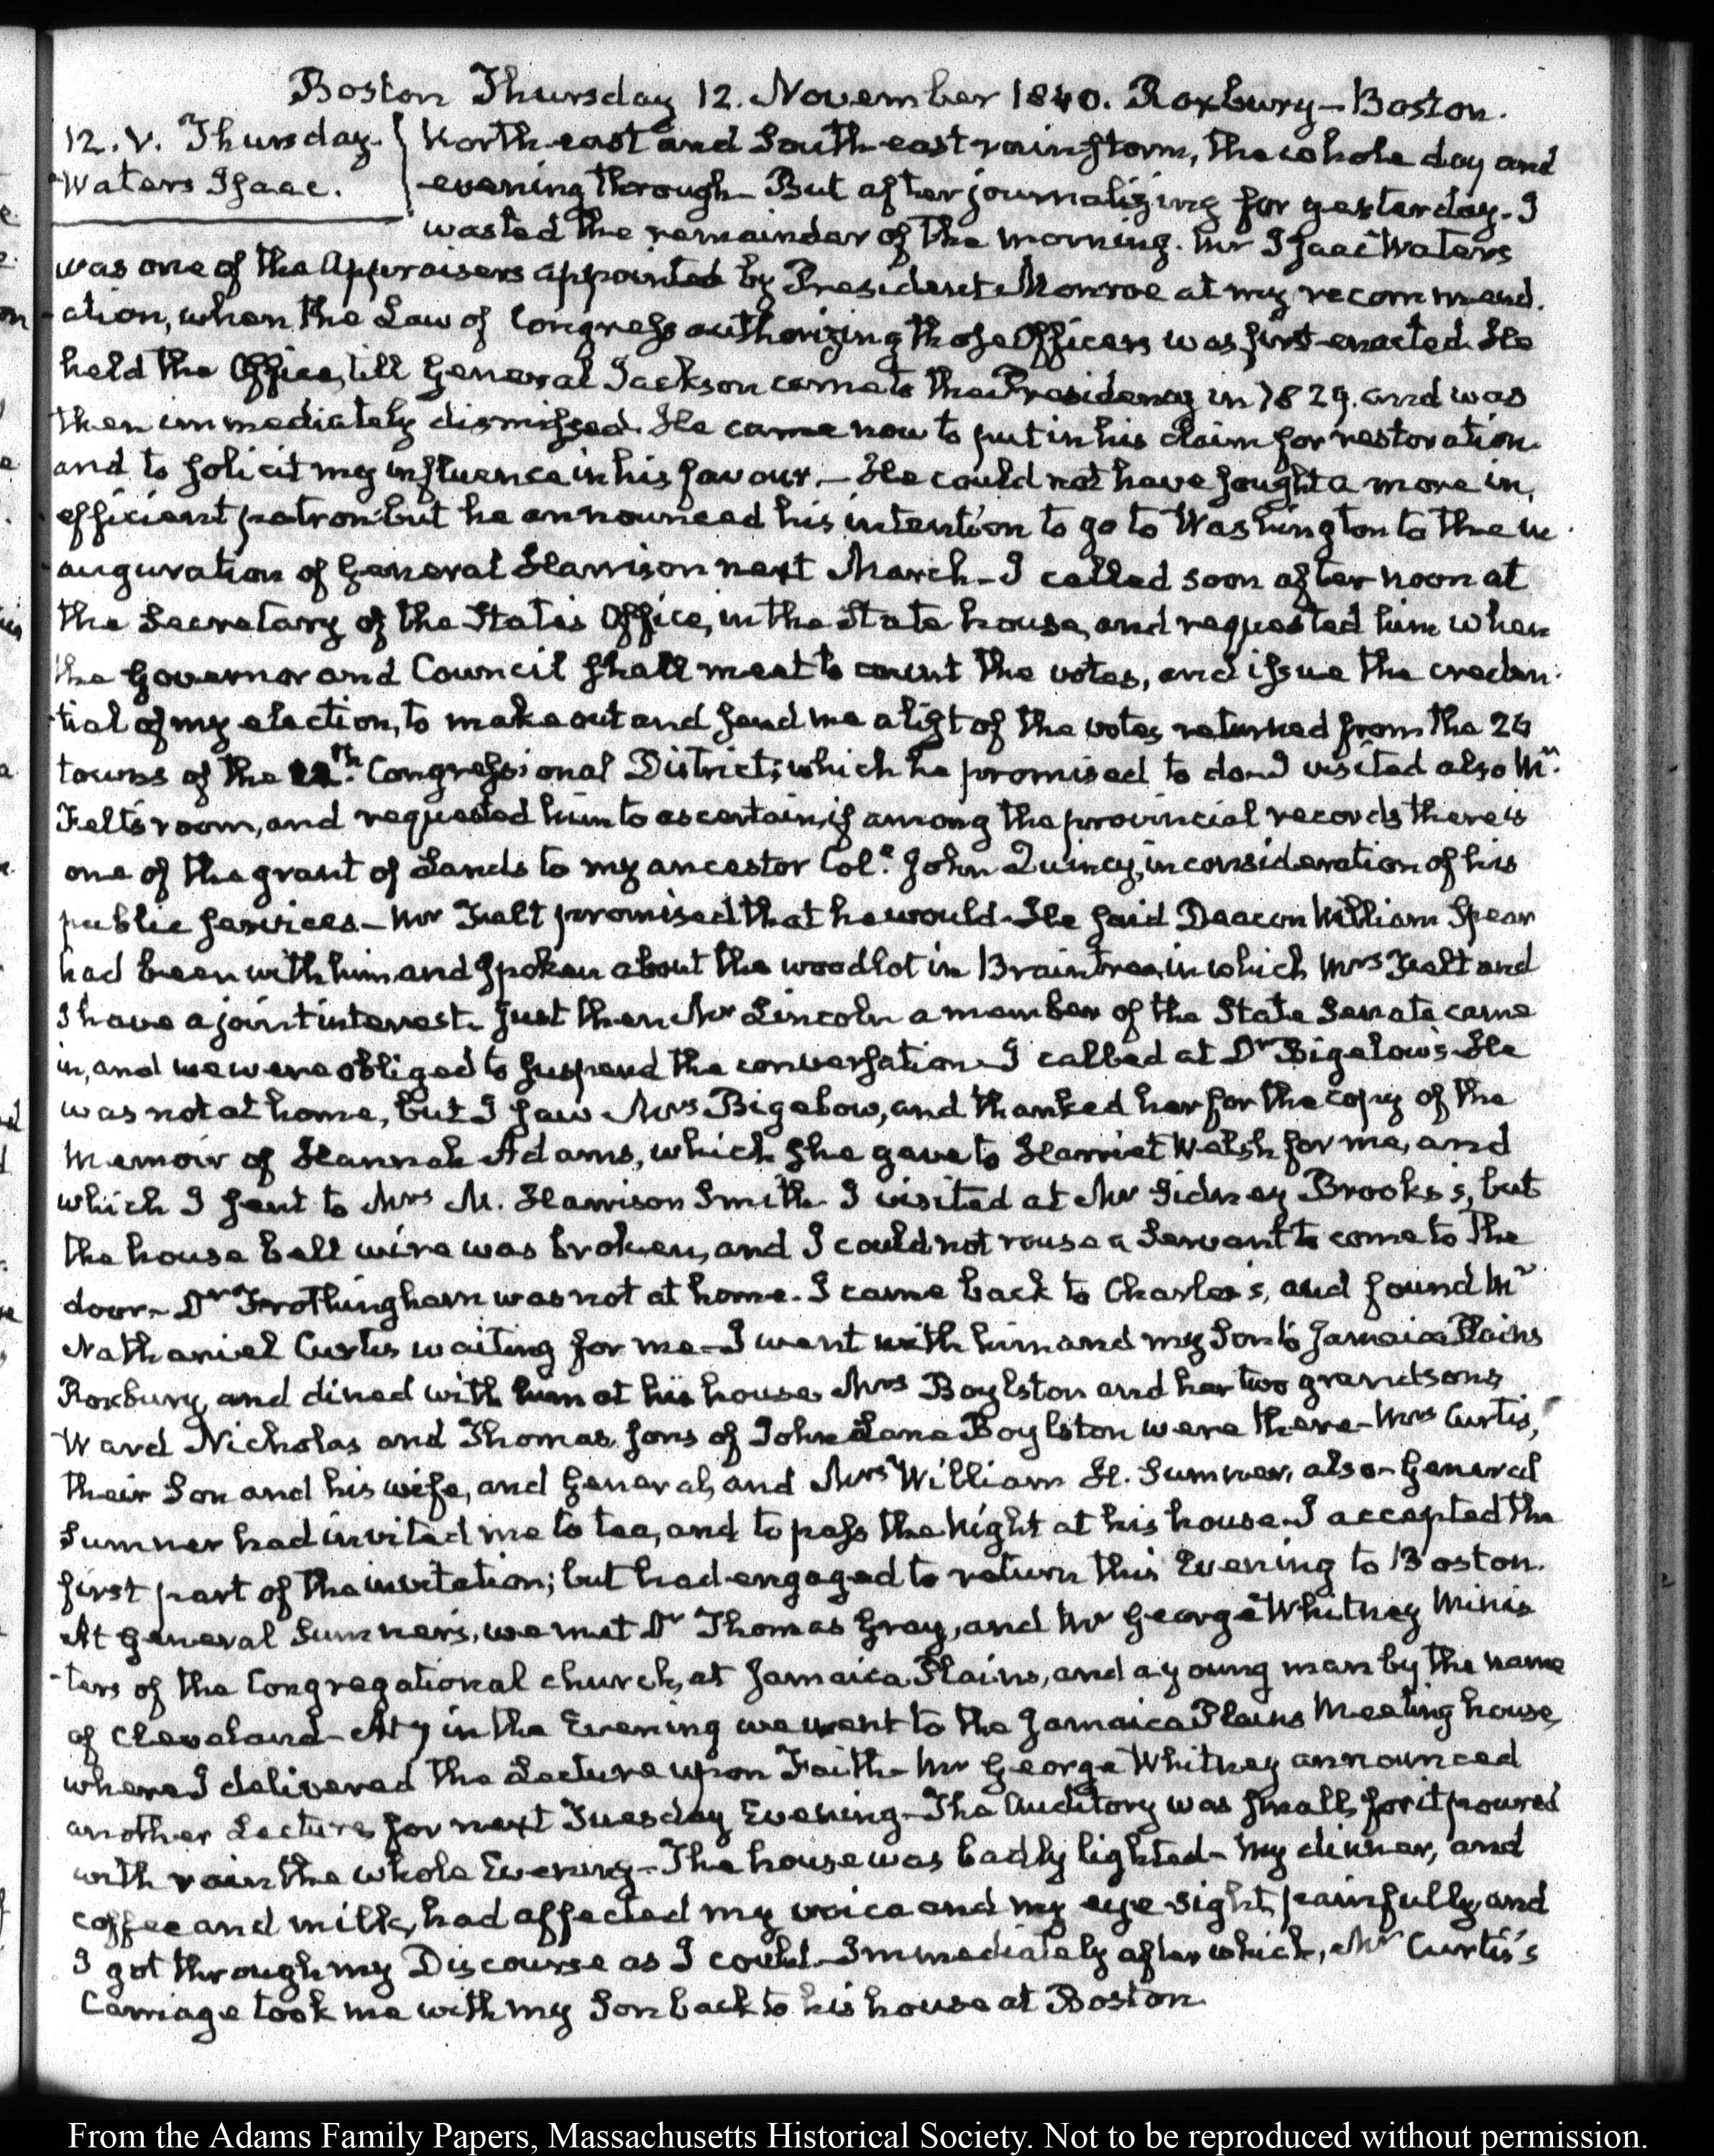 Boston Thursday 12. November 1840. Roxbury – Boston.
12. V. Thursday.
Waters Isaac.
North-east and South-east rain storm, the whole day and
evening through – But after journalizing for yesterday. I
wasted the remainder of the morning. Mr Isaac Waters
was one of the Appraisers appointed by President Monroe at my recommend-
ation, when the Law of Congress authorizing those Officers was first enacted. He
held the Office, till General Jackson came to the Presidency in 1829. and was
then immediately dismissed. He came now to put in his claim for restoration
and to solicit my influence in his favour. – He could not have sought a more in-
efficient patron: but he announced his intention to go to Washington to the in
auguration of General Harrison next March – I called soon after noon at
the Secretary of the State's Office, in the State house, and requested him when
the Governor and Council shall meet to count the votes, and issue the creden-
tial of my election, to make out and send me a list of the votes returned from the 26
towns of the 12th. Congressional District; which he promised to do. I visited also Mr.
Felt's room, and requested him to ascertain, if among the provincial records there is
one of the grant of Lands to my ancestor Col.l John Quincy, in consideration of his
public services – Mr Felt promised that he would. He said Deacon William Spear
had been with him, and spoken about the woodlot in Braintree, in which Mrs Felt and
I have a joint interest. Just then Mr Lincoln a member of the State Senate came
in, and we were obliged to suspend the conversation – I called at Dr Bigelow's – He
was not at home, but I saw Mrs Bigelow, and thanked her for the copy of the
Memoir of Hannah Adams, which she gave to Harriet Welsh for me, and
which I sent to Mrs M. Harrison Smith. I visited at Mr Sidney Brooks's, but
the house bell wire was broken, and I could not rouse a Servant to come to the
door – Dr Frothingham was not at home. I came back to Charles's, and found Mr
Nathaniel Curtis waiting for me – I went with him and my Son to Jamaica Plains
Roxbury, and dined with him at his house. Mrs Boylston and her two grandsons
Ward Nicholas and Thomas, sons of John Lane Boylston were there – Mrs Curtis,
their Son and his wife, and General, and Mrs William H. Sumner, also – General
Sumner had invited me to tea, and to pass the Night at his house – I accepted the
first part of the invitation; but had engaged to return this Evening to Boston.
At General Sumner's, we met Dr Thomas Gray, and Mr George Whitney Minis
-ters of the Congregational church, at Jamaica Plains, and a young man by the name
of Cleveland – At 7 in the Evening we went to the Jamaica Plains Meeting house,
where I delivered the Lecture upon Faith – Mr George Whitney announced
another Lecture for next Tuesday Evening – The Auditory was small, for it poured
with rain the whole Evening – The house was badly lighted – My dinner, and
coffee and milk, had affected my voice and my eye-sight, painfully, and
I got through my Discourse as I could – Immediately after which, Mr Curtis's
Carriage took me with my Son back to his house at Boston.
From the Adams Family Papers, Massachusetts Historical Society. Not to be reproduced without permission.